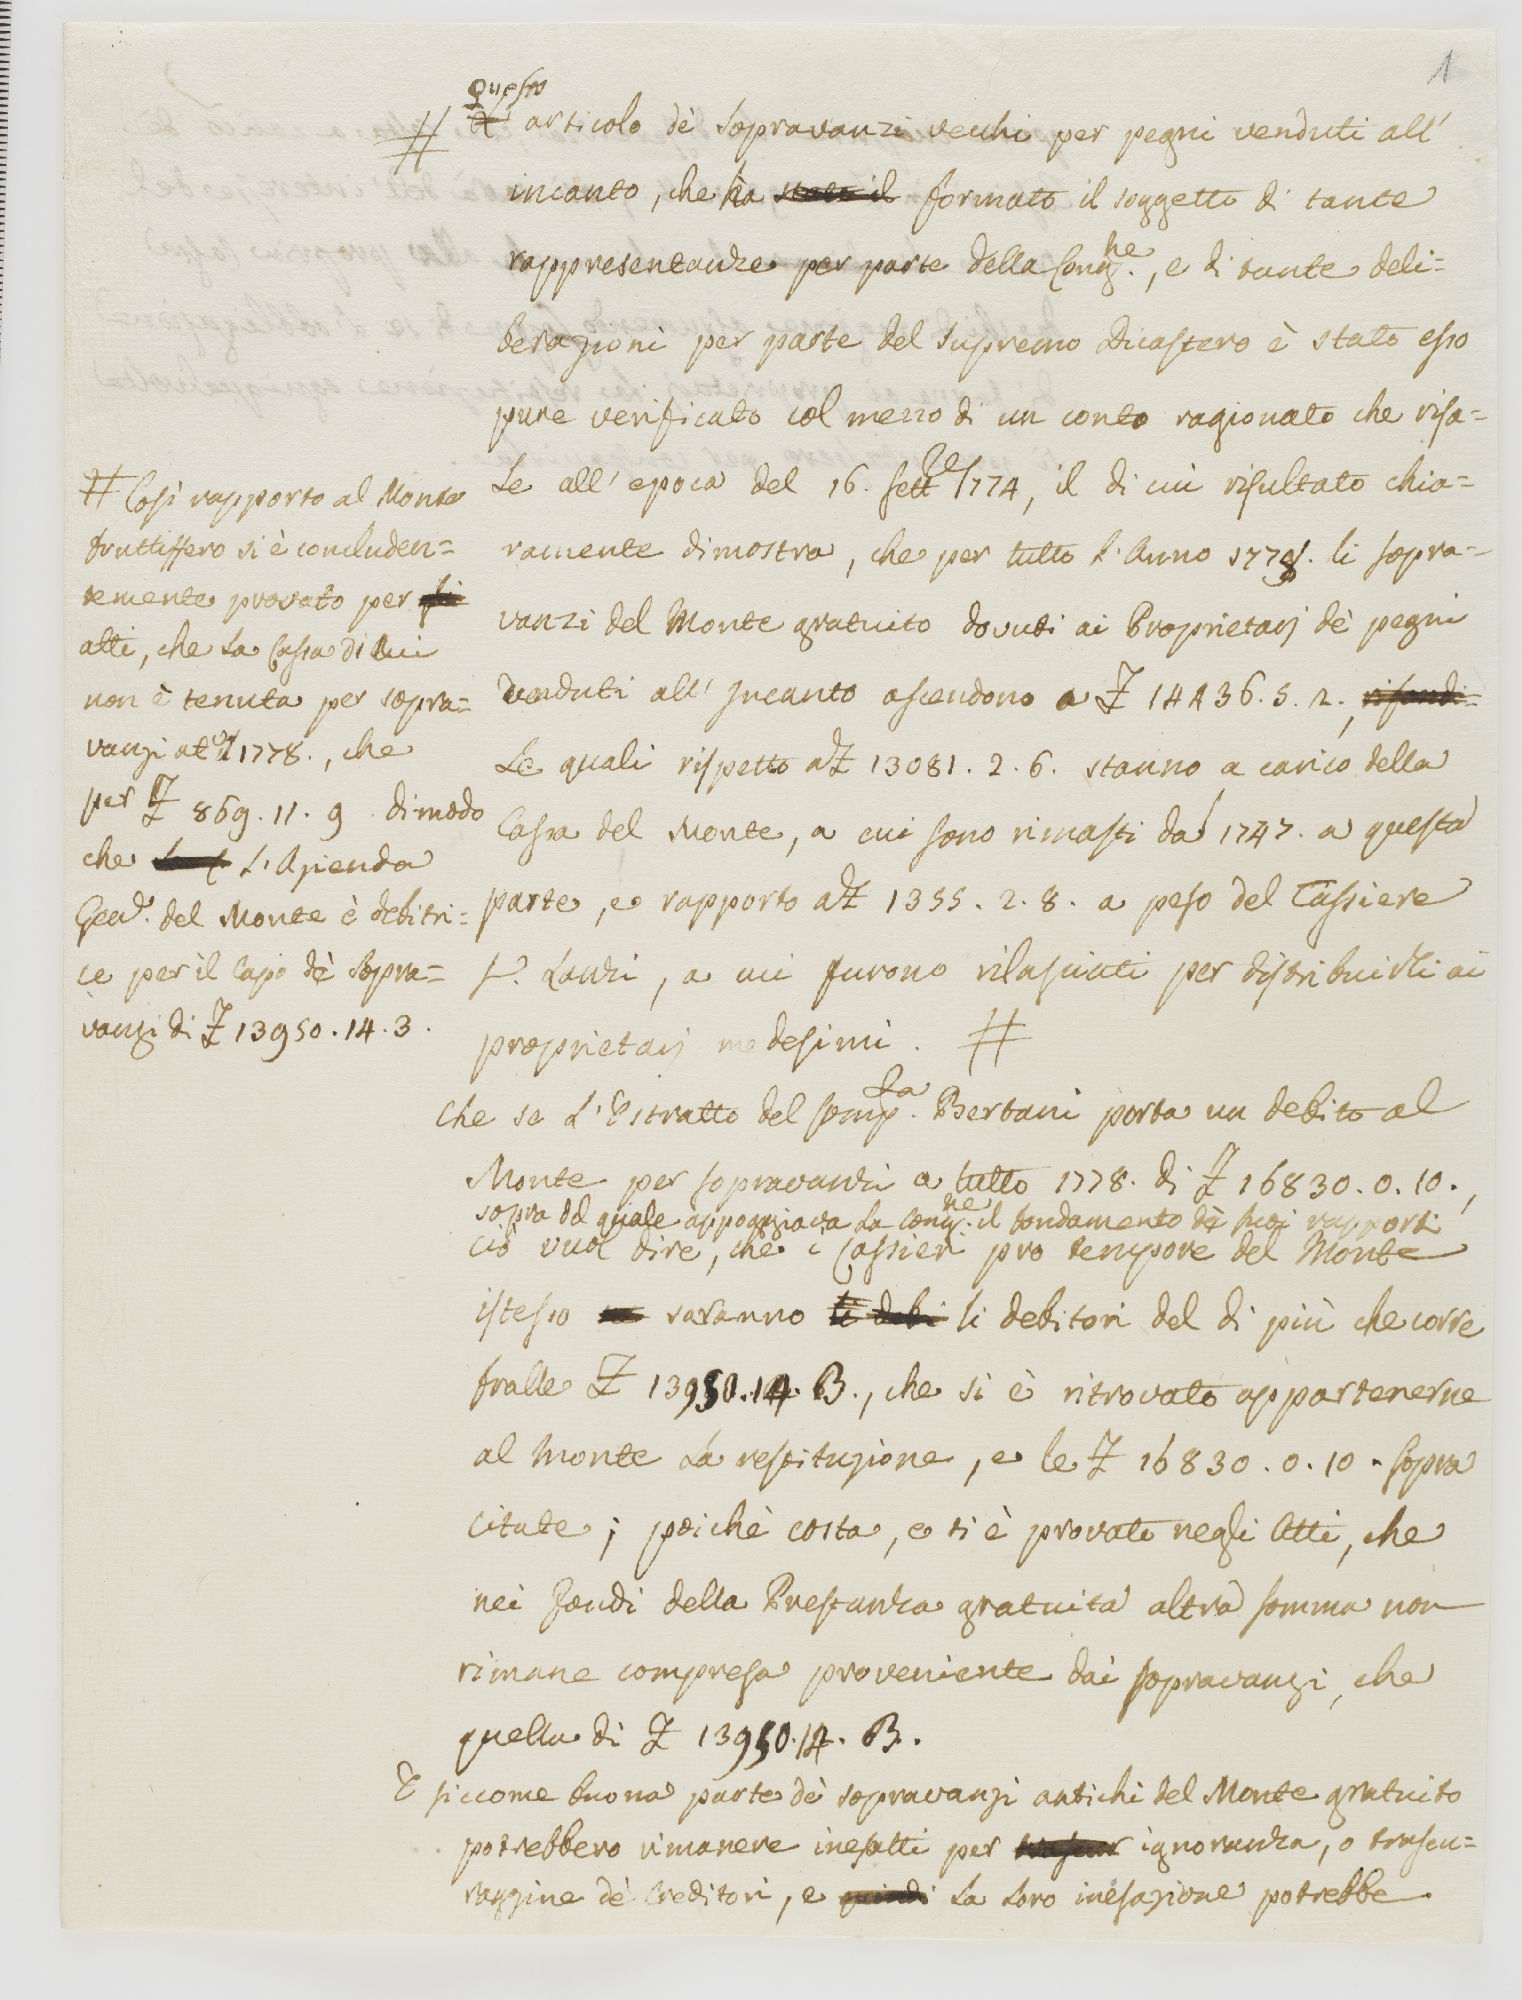 1
Questo
# articolo dè sopravanzi vechi per pegni venduti all'
incanto, che hà stato il formato il soggetto di tante
rappresentanze per parte della Congne., e di tante deli=
berazioni per parte del supremo Dicastero è stato esso
pure verificato col mezzo di un conto ragionato che risa=
le all'epoca del 16. Sett.re 1774, il di cui risultato chia=
ramente dimostra, che per tutto l'Anno 1778. li sopra=
vanzi del Monte gratuito dovuti ai Proprietarj dè pegni
venduti all'Incanto ascendono a £ 14436.5.2.,
Le quali rispetto a £ 13081.2.6. stanno a carico della
Cassa del Monte, a cui sono rimasti dal 1747. a questa
parte, e rapporto a £ 1355.2.8. a peso del Cassiere
Landi, a cui furono rilasciati per distribuirli ai
proprietarj medesimi. #
# Così rapporto al Monte
fruttiffero si è concluden=
temente provato per
atti, che la Cassa di lui
non è tenuta per sopra=
vanzi 1778., che
per £ 869.11.9 dimodo
che L'Azienda
Gen.le del Monte è debitri=
ce per il Capo dè sopra=
vanzi di £ 13950.14.3.
Che se L'Estratto del Comp.ta Bertani porta un debito al
Monte per sopravanzi a tutto 1778. di £ 16830.0.10.,
sopra del quale appoggiava la Congne. il fondamento dè suoi rapporti
ciò vuol dire, che i Cassieri pro tempore del Monte
istesso saranno li debi li debitori del di più che corre
fralle £ 13950.14.3., che si è ritrovato appartenerne
al Monte la restituzione, e le £ 16830.0.10. sopra
citate; poichè costa, e si è provato negli Atti, che
nei fondi della Prestanza gratuita altra somma non
rimane compresa proveniente dai sopravanzi, che
quella di £ 13950.14.3.
E siccome buona parte dè sopravanzi antichi del Monte gratuito
potrebbero rimanere inesatti per ignoranza, o trascu=
raggine dè Creditori, e quindi la loro inesazione potrebbe